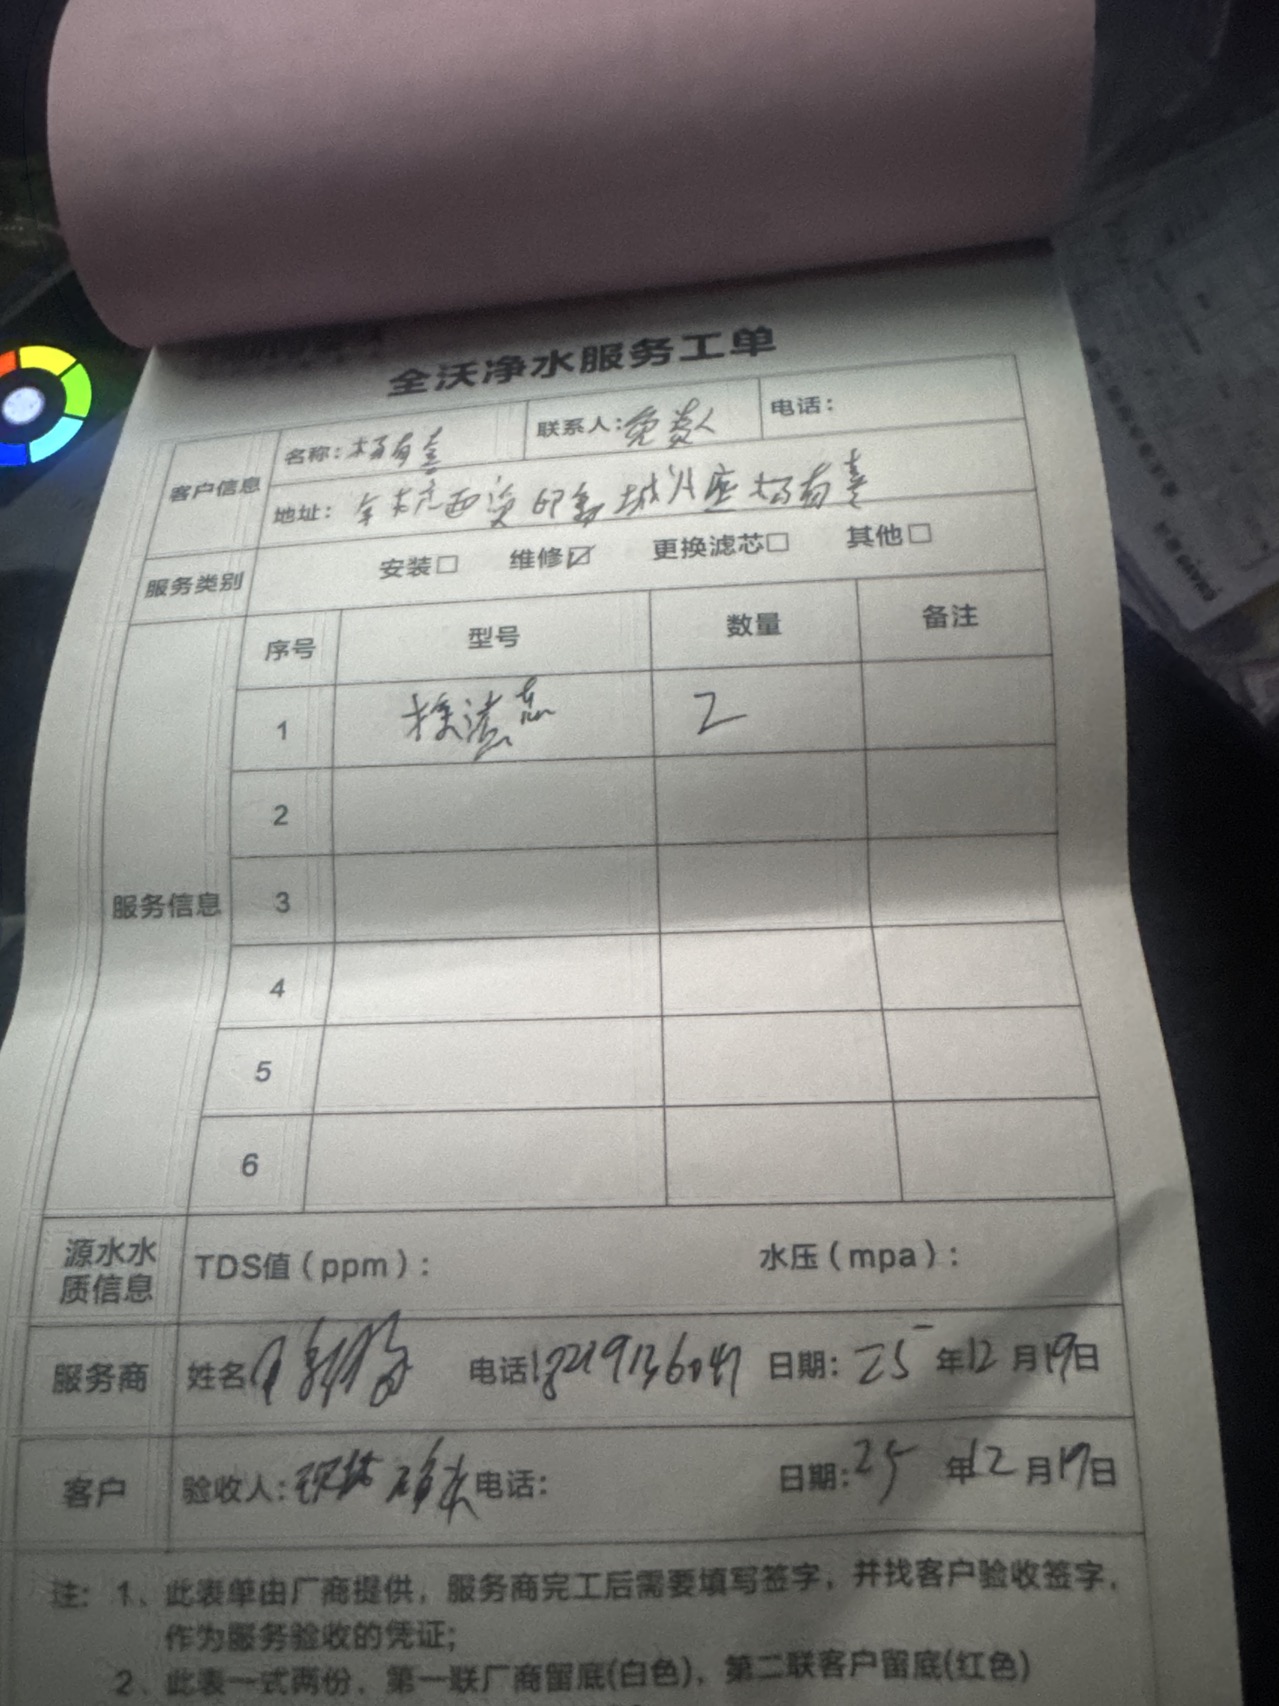 全沃净水服务工单
客户信息 名称：杨有喜 联系人：负责人 电话：
地址： 城 座杨有喜
服务类别 安装□ 维修☑ 更换滤芯□ 其他□
服务信息 序号 型号 数量 备注
1 换滤芯 2
2
3
4
5
6
源水水质信息 TDS值（ppm）： 水压（mpa）：
服务商 姓名 电话 日期：25年12月19日
客户 验收人： 电话： 日期：25年12月19日
注：1、此表单由厂商提供，服务商完工后需要填写签字，并找客户验收签字，
作为服务验收的凭证；
2、此表一式两份，第一联厂商留底(白色)，第二联客户留底(红色)